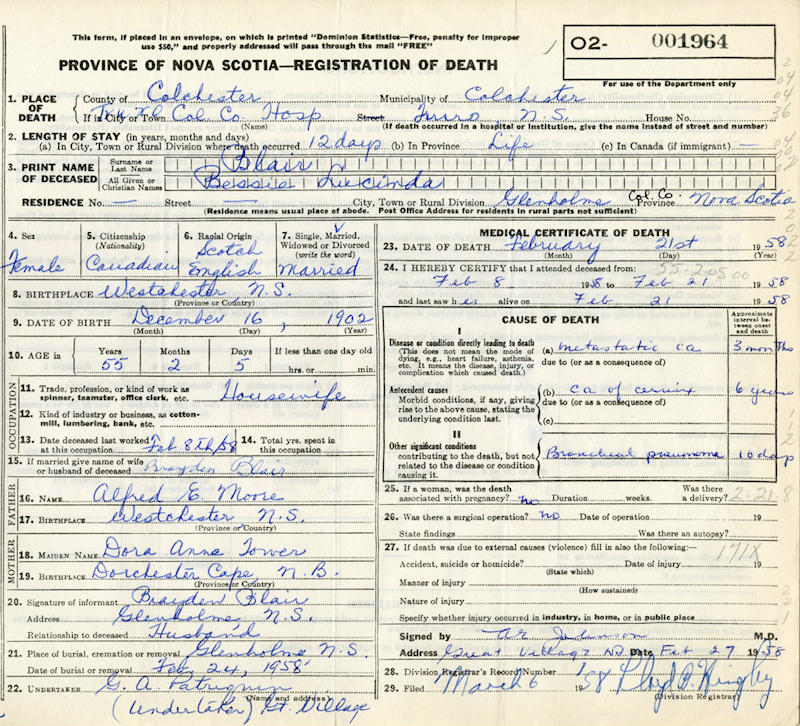 This form, if placed in an envelope, on which is printed "Dominion Statistics—Free, penalty for improper
use $50," and properly addressed will pass through the mail "FREE"
PROVINCE OF NOVA SCOTIA—REGISTRATION OF DEATH
O2- 001964
For use of the Department only
1. PLACE OF DEATH
County of Colchester Municipality of Colchester
If in City or Town Col. Co. Hosp Street Truro, N.S. House No.
(Name) (If death occurred in a hospital or institution, give the name instead of street and number)
2. LENGTH OF STAY (in years, months and days)
(a) In City, Town or Rural Division where death occurred 12 days (b) In Province Life (c) In Canada (if immigrant) —
3. PRINT NAME OF DECEASED
Surname or Last Name Blair
All Given or Christian Names Bessie Lucinda
RESIDENCE No. — Street — City, Town or Rural Division Glenholme Col. Co. Province Nova Scotia
(Residence means usual place of abode. Post Office Address for residents in rural parts not sufficient)
4. Sex Female
5. Citizenship (Nationality) Canadian
6. Racial Origin Scotch English
7. Single, Married, Widowed or Divorced (write the word) Married
8. BIRTHPLACE Westchester N.S.
(Province or Country)
9. DATE OF BIRTH December 16, 1902
(Month) (Day) (Year)
10. AGE in Years 55 Months 2 Days 5 If less than one day old hrs. or min.
OCCUPATION
11. Trade, profession, or kind of work as spinner, teamster, office clerk, etc. Housewife
12. Kind of industry or business, as cotton-mill, lumbering, bank, etc.
13. Date deceased last worked at this occupation Feb 8th/58
14. Total yrs. spent in this occupation
15. If married give name of wife or husband of deceased Brayden Blair
FATHER
16. NAME Alfred E. Moore
17. BIRTHPLACE Westchester N.S.
(Province or Country)
MOTHER
18. MAIDEN NAME Dora Anne Tower
19. BIRTHPLACE Dorchester Cape, N.B.
(Province or Country)
20. Signature of informant Brayden Blair
Address Glenholme, N.S.
Relationship to deceased Husband
21. Place of burial, cremation or removal Glenholme N.S.
Date of burial or removal Feb 24, 1958
22. UNDERTAKER G. A.
(Name and address)
(Undertaker) Gt. Village
MEDICAL CERTIFICATE OF DEATH
23. DATE OF DEATH February 21st 1958
(Month) (Day) (Year)
24. I HEREBY CERTIFY that I attended deceased from:
Feb 8 1958 to Feb 21 1958
and last saw her alive on Feb 21 1958
CAUSE OF DEATH
Approximate interval between onset and death
I
Disease or condition directly leading to death
(This does not mean the mode of dying, e.g., heart failure, asthma, etc. It means the disease, injury, or complication which caused death.)
(a) metastatic ca 3 months
due to (or as a consequence of)
Antecedent causes
Morbid conditions, if any, giving rise to the above cause, stating the underlying condition last.
(b) ca of cervix 6 years
due to (or as a consequence of)
(c)
II
Other significant conditions
contributing to the death, but not related to the disease or condition causing it.
Bronchial pneumonia 10 days
25. If a woman, was the death associated with pregnancy? no Duration weeks. Was there a delivery? 2-21-8
26. Was there a surgical operation? no Date of operation 19
State findings Was there an autopsy?
27. If death was due to external causes (violence) fill in also the following:— 171X
Accident, suicide or homicide? Date of injury 19
(State which)
Manner of injury
(How sustained)
Nature of injury
Specify whether injury occurred in industry, in home, or in public place
Signed by Johnson M.D.
Address Great Village N.S. Date Feb 27 1958
28. Division Registrar's Record Number
29. Filed March 6
(Division Registrar)